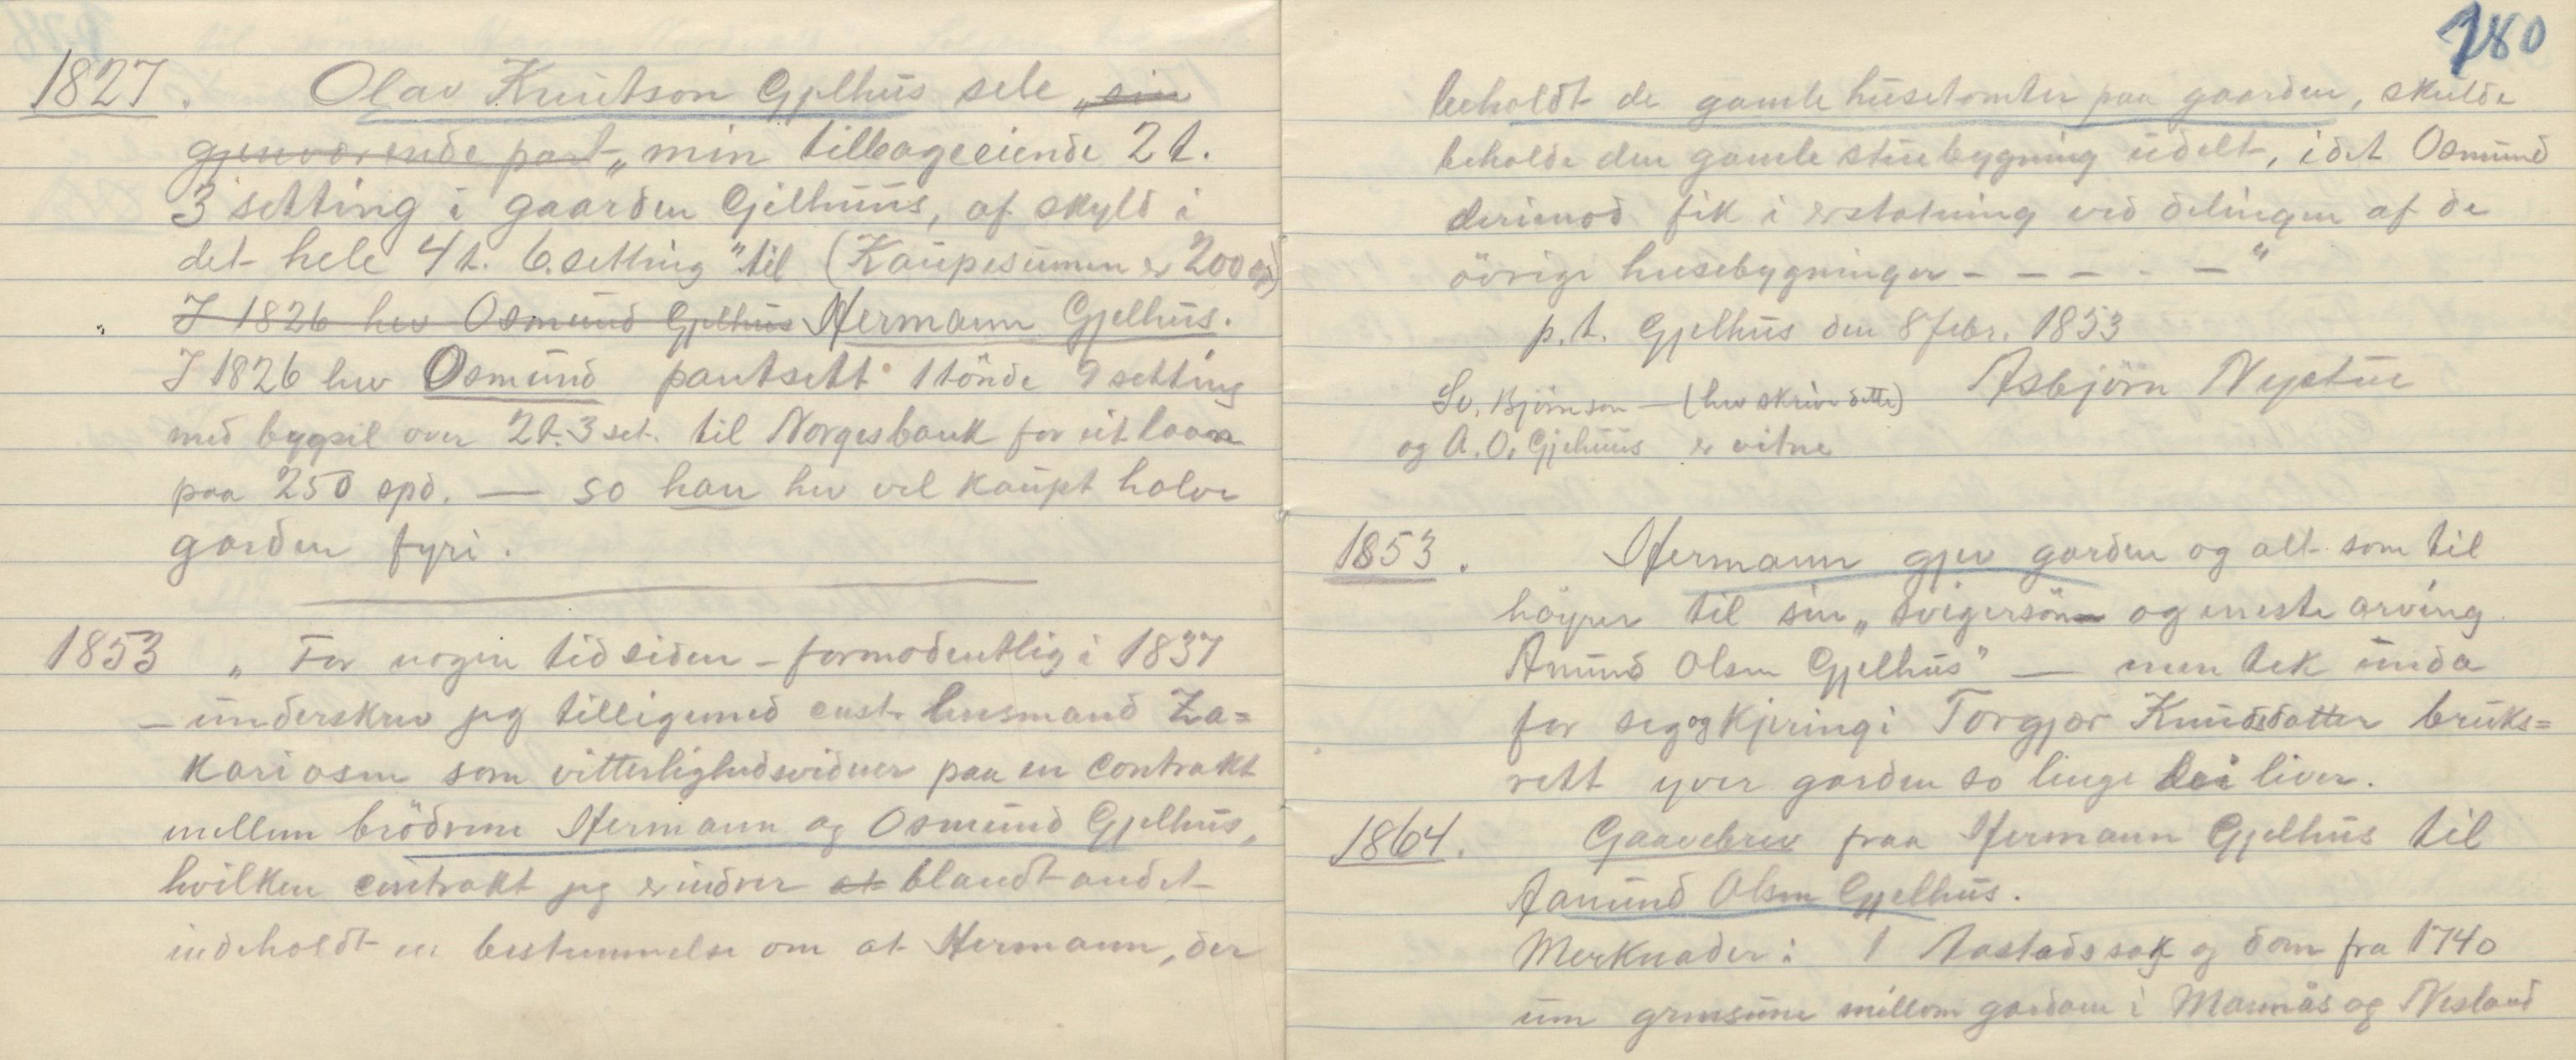 1827. Olav Knutson Gjelhus sele „sin
gjenværende part „min tilbageeiende 2 t.
3 setting i gaarden Gjelhuus, af skyld i
det hele 4 t. 6. setting" til (Kaupesumen er 200 spd)
I 1826 hev Osmund Gjelhus Hermann Gjelhus.
I 1826 hev Osmund pantsett 1 tönde 9 setting
med bygsil over 2 t. 3 set. til Norgesbank for eit laan
paa 250 spd. — so han hev vel kaupt halve
garden fyri.
1853 „ For nogen tid siden – formodentlig i 1837
– underskrev jeg tilligemed husmand Za=
kariasen som vitterlighedsvidner paa en contrakt
mellem brödrene Hermann og Osmund Gjelhus,
hvilken contrakt jeg erindrer at blandt andet
indeholdt en bestemmelse om at Hermann, der
780
beholdt de gamle husetomter paa gaarden, skulde
beholde den gamle stuebygning udelt, idet Osmund
derimod fik i erstatning ved delingen af de
övrige husebygninger – – – – –"
p. t. Gjelhus den 8 febr. 1853
Asbjörn Nystue
Sv. Björnson — (hev skrive dette)
og A. O. Gjelhuus er vitne
1853. Hermann gjev garden og alt som til
höyrer til sin „svigersön og eneste arving
Anund Olsen Gjelhus" — men tek unda
for seg og kjeringi Torgjær Knudsdatter bruks=
rett yver garden so lenge dei liver.
1864. Gaavebrev fraa Hermann Gjelhus til
Aanund Olsen Gjelhus.
Merknader: 1 Aastadssak og dom fra 1740
um grensune millom gardane i Marnäs og Nesland